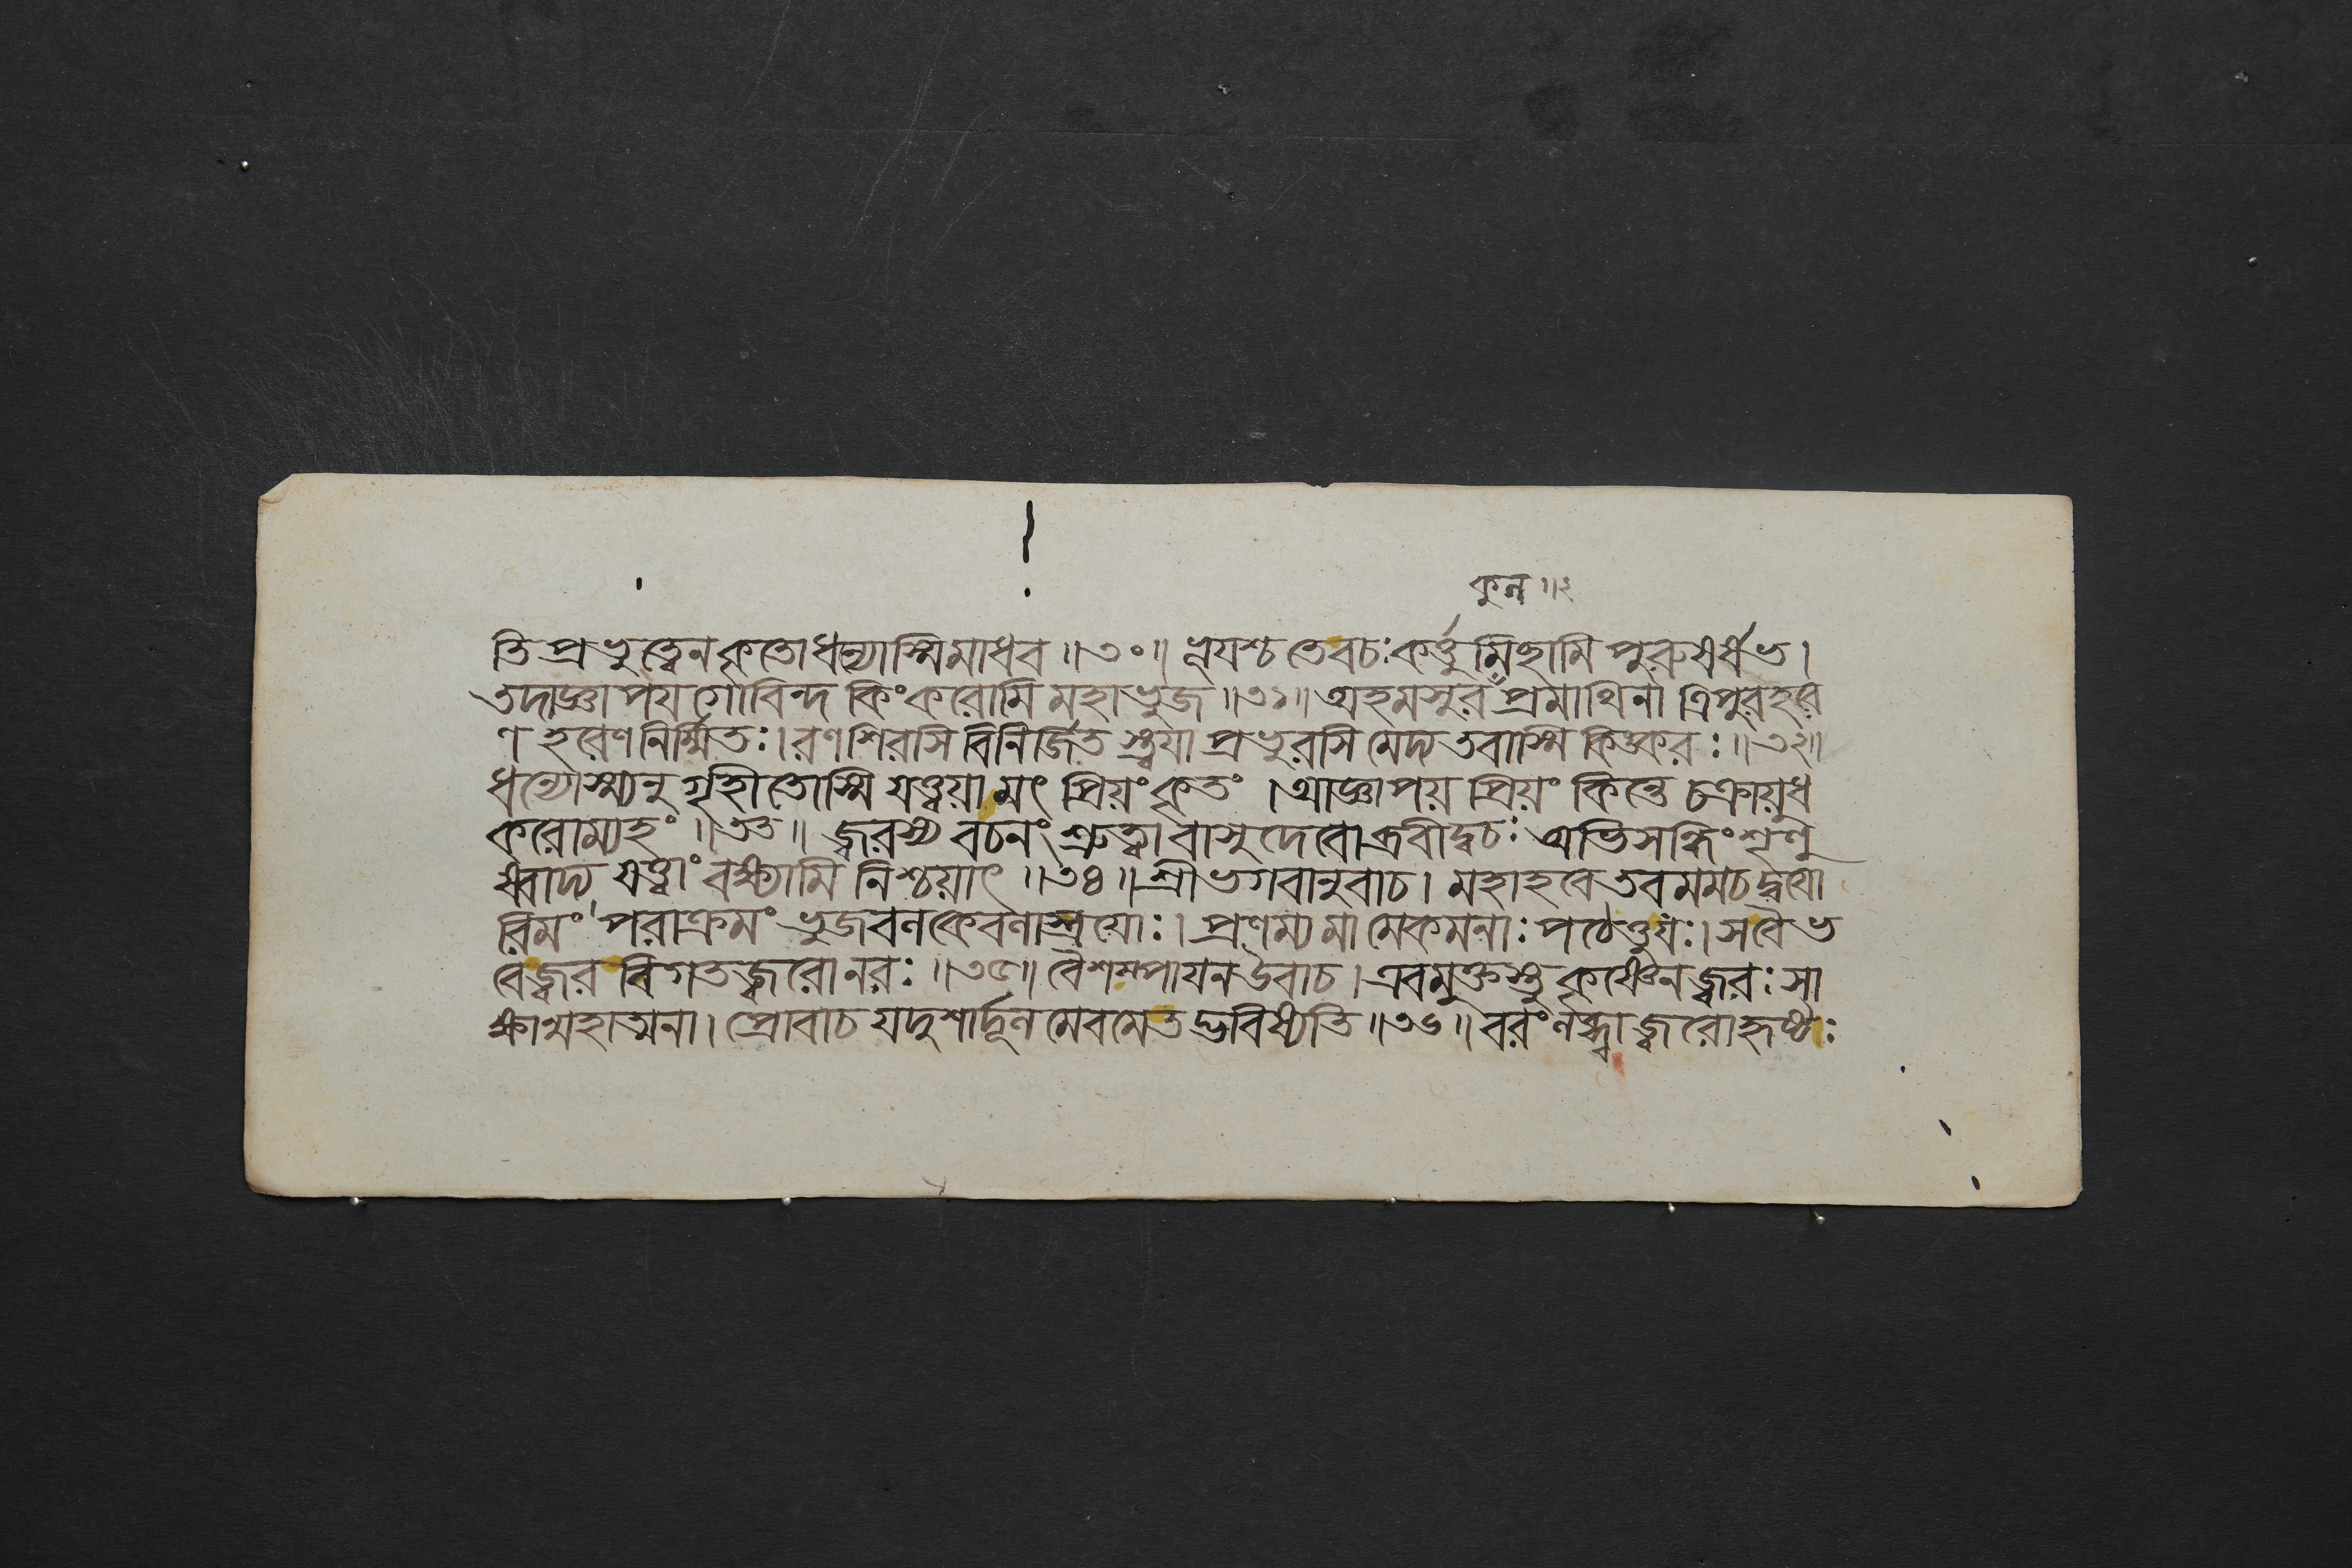 কুল ॥২
তি প্রভুত্বেন কৃতোধন্যোস্মিমাধব ॥৩০॥ প্রিয়ঞ্চ তেবচঃকর্ত্তুমিচ্ছামি পুরুষর্ষভ।
তদাজ্ঞাপয় গোবিন্দ কিংকরোমি মহাভুজ ॥৩১॥ অহমসুর প্রমাথিনা ত্রিপুরহরে
ণ হরেণ নির্ম্মিতঃ। রণশিরসি বিনির্জিত স্ত্বয়া প্রভুরসি মেদ্য তবাস্মি কিঙ্করঃ ॥৩২॥
ধন্যোস্ম্যনু গৃহীতোস্মি যত্ত্বয়া মৎ প্রিয়ং কৃতং । আজ্ঞাপয় প্রিয়ং কিন্তে চক্রায়ুধ
করোম্যহং ॥৩৩॥ জ্বরস্য বচনং শ্রুত্বা বাসুদেবোব্রবীদ্বচঃ অভিসন্ধিং শৃণু
ষ্বাদ্য যত্ত্বাং বক্ষ্যামি নিশ্চয়াৎ ॥৩৪॥ শ্রীভগবানুবাচ। মহাহবে তব মমচ দ্বয়ো
রিমং পরাক্রমং ভুজবলকেবলাস্ত্রয়োঃ। প্রণম্য মা মেকমনাঃ পঠেত্তুযঃ। সবৈ ভ
বেজ্জ্বর বিগতজ্বরোনরঃ ॥৩৫॥ বৈশম্পায়ন উবাচ। এবমুক্তস্তু কৃষ্ণেন জ্বরঃ সা
ক্ষান্মহাত্মনা। প্রোবাচ যদুশার্দ্দূল মেবমেতদ্ভবিষ্যতি ॥৩৬॥ বরং লব্ধ্বা জ্বরোহৃষ্টঃ